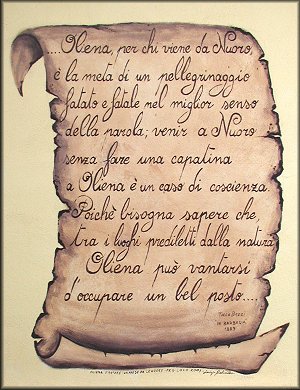 ....Oliena, per chi viene da Nuoro,
è la meta di un pellegrinaggio
fatato e fatale nel miglior senso
della parola; venir a Nuoro
senza fare una capatina
a Oliena è un caso di coscienza.
Poichè bisogna sapere che,
tra i luoghi prediletti dalla natura
Oliena può vantarsi
d'occupare un bel posto....
IN BARBAGIA